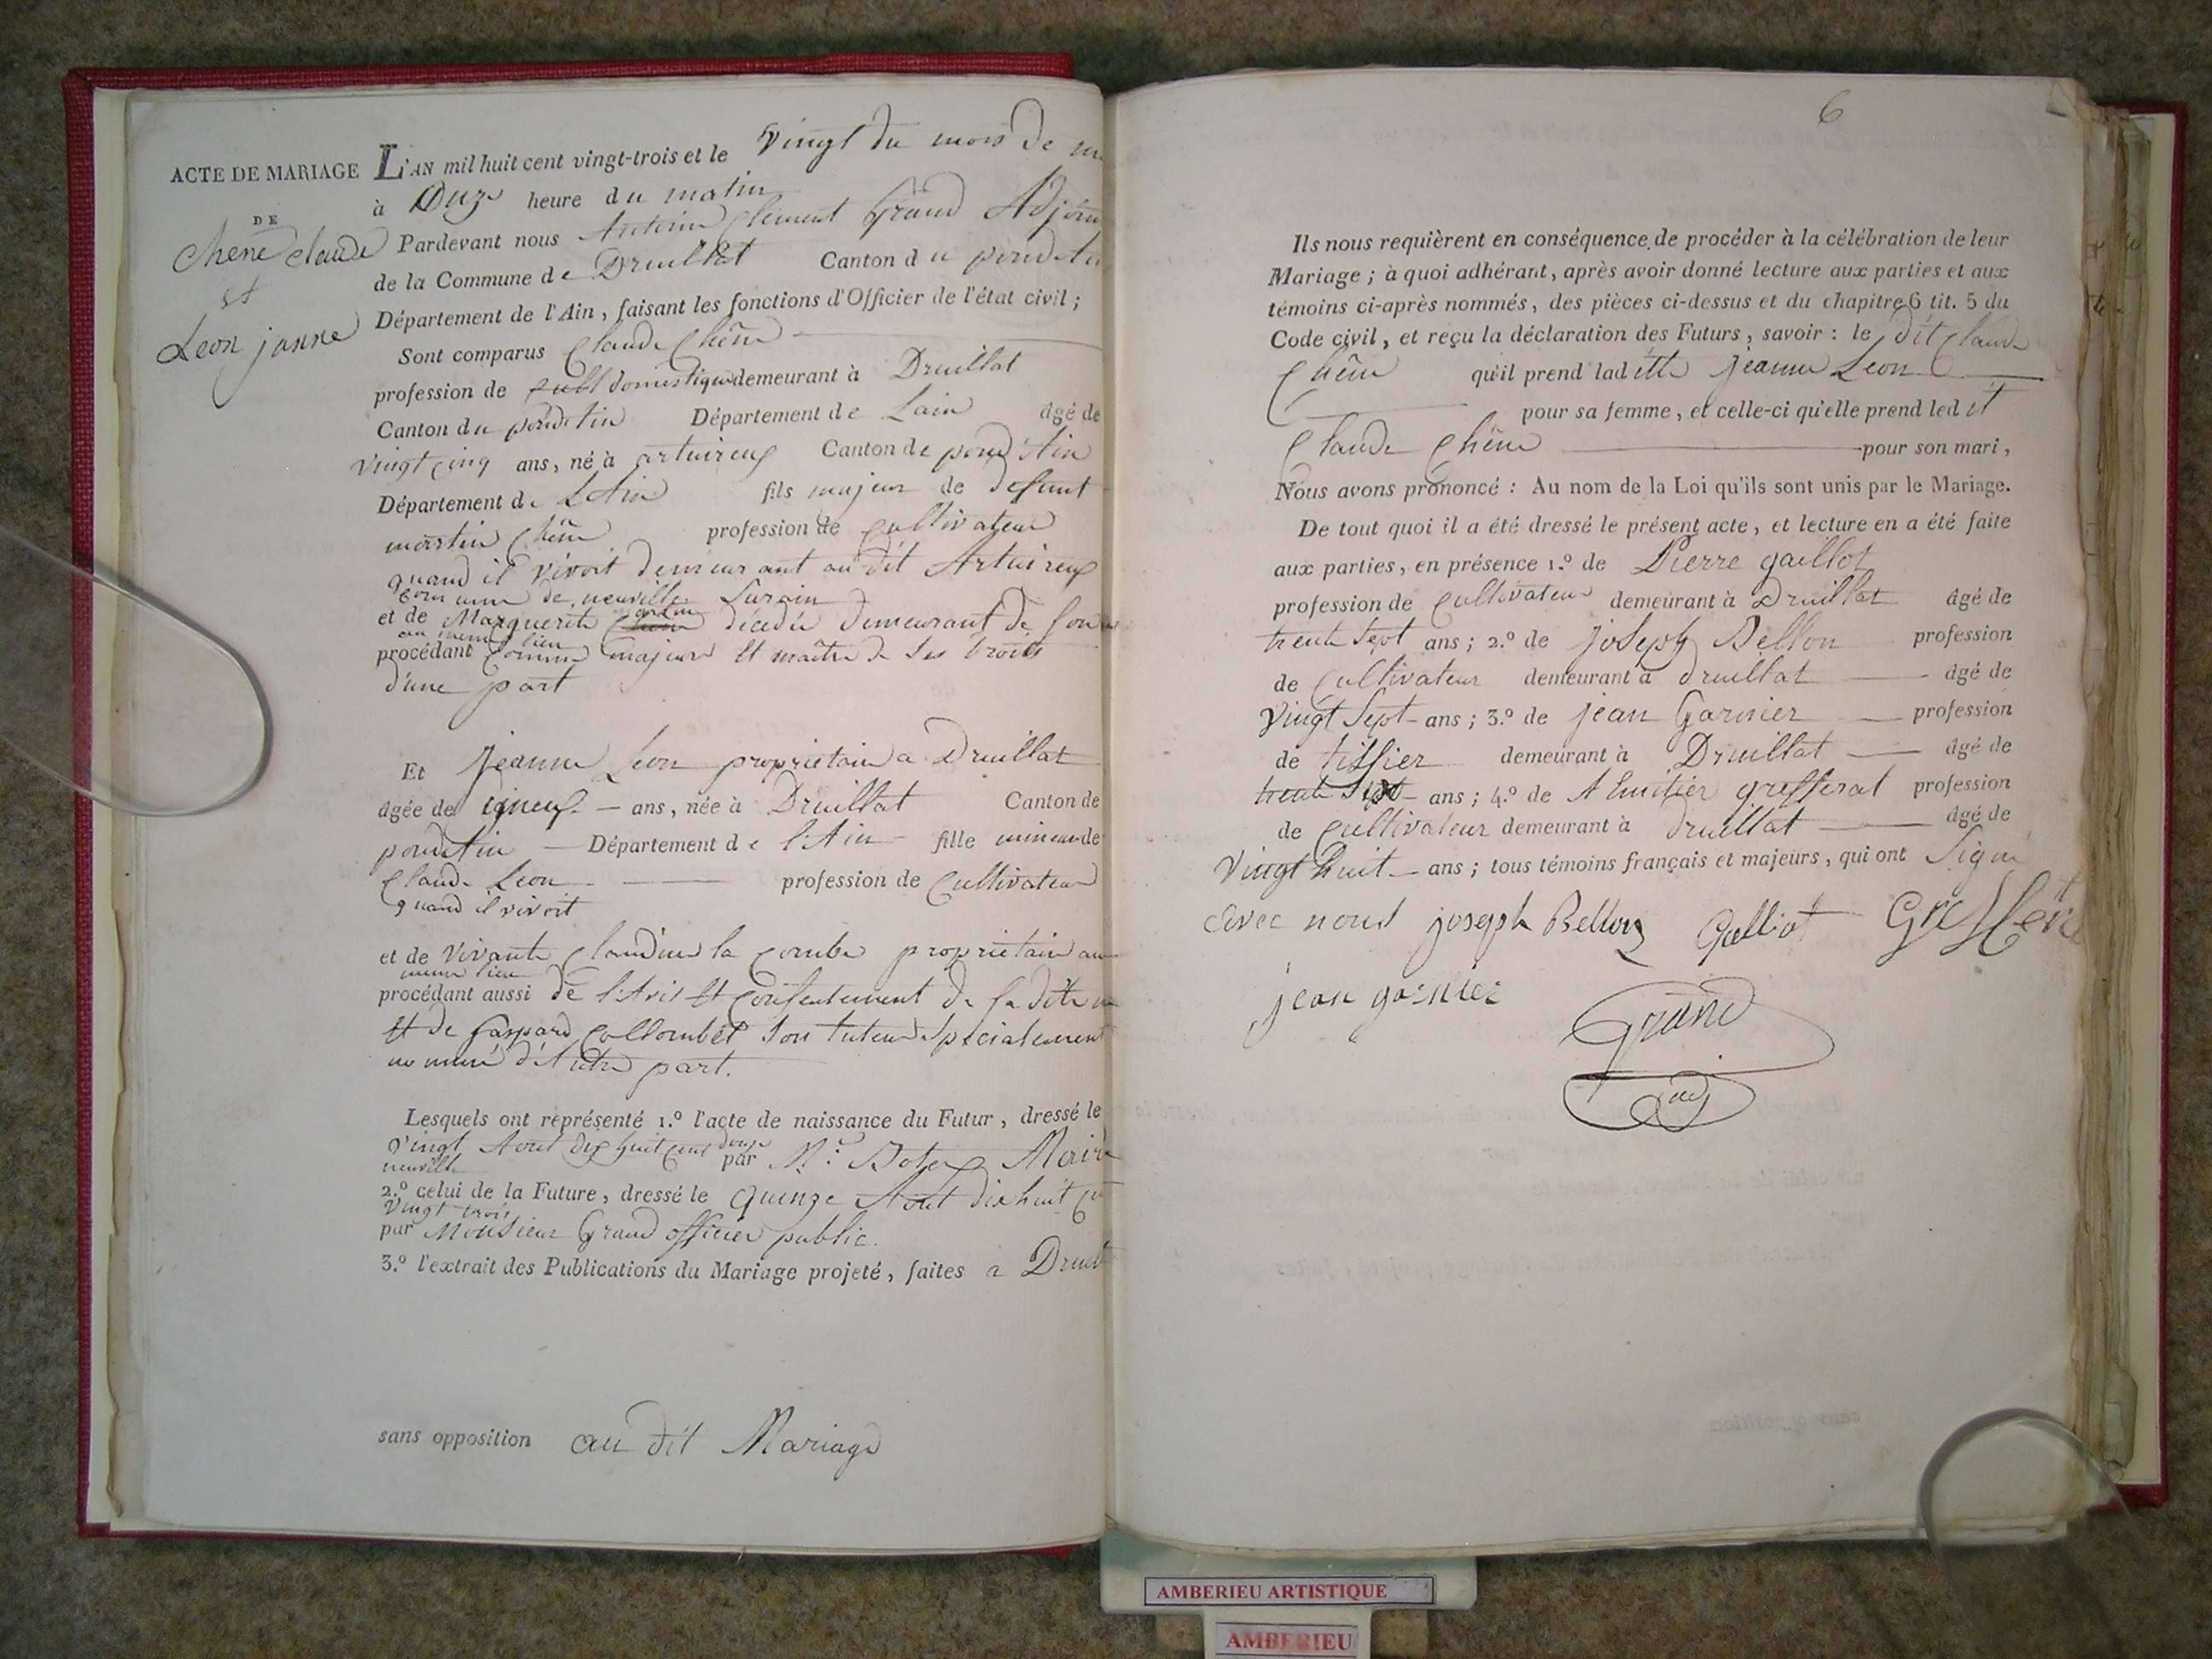 ACTE DE MARIAGE
DE
Chene Claude
et
Leon janne
L'AN mil huit cent vingt-trois et le vingt du mois de
à Onze heure du matin
Pardevant nous Antoine Clement Grand Adjoin
de la Commune de Druillat Canton du pondin
Département de l'Ain, faisant les fonctions d'Officier de l'état civil;
Sont comparus Claude Chêne
profession de domestique demeurant à Druillat
Canton du pondin Département de Lain âgé de
vingt cinq ans, né à artuireux Canton de pond'Ain
Département de L'Ain fils majeur de defunt
martin Chêne profession de Cultivateur
quand il vivoit demeurant au dit Artuireux
Commune de neuville Surain
et de Marguerite décédée demeurant de Son
au meme lieu
procédant Comme majeur Et maître de Ses Droits
d'une part
Et Jeanne Leon proprietaire a Druillat
âgée de ans, née à Druillat Canton de
pondain Département de l'Ain fille mineur de
Claude Leon profession de Cultivateur
quand il vivoit
et de vivante Claudine la Combe proprietaire au
meme lieu
procédant aussi de l'Avis Et Consentement de sa dite
Et de Gaspard Collombet Son tuteur Specialement
nommé d'Autre part.
Lesquels ont représenté 1.º l'acte de naissance du Futur, dressé le
vingt Aout dix huit Cent douze par Mr. Maire
neuville
2.º celui de la Future, dressé le quinze Aout dix huit
vingt trois
par Monsieur Grand officier public.
3.º l'extrait des Publications du Mariage projeté, faites a
sans opposition au dit Mariage
6
Ils nous requièrent en conséquence de procéder à la célébration de leur
Mariage; à quoi adhérant, après avoir donné lecture aux parties et aux
témoins ci-après nommés, des pièces ci-dessus et du chapitre 6 tit. 5 du
Code civil, et reçu la déclaration des Futurs, savoir: le dit Claude
Chêne qu'il prend ladite Jeanne Leon
pour sa femme, et celle-ci qu'elle prend ledit
Claude Chêne pour son mari,
Nous avons prononcé: Au nom de la Loi qu'ils sont unis par le Mariage.
De tout quoi il a été dressé le présent acte, et lecture en a été faite
aux parties, en présence 1.º de Pierre gaillot
profession de Cultivateur demeurant à Druillat âgé de
trente Sept ans; 2.º de joseph Bellon profession
de Cultivateur demeurant à druillat âgé de
Vingt Sept ans; 3.º de jean Garnier profession
de tissier demeurant à Druillat âgé de
trente Sept ans; 4.º de grefferat profession
de Cultivateur demeurant à druillat âgé de
Vingt huit ans; tous témoins français et majeurs, qui ont Signé
avec nous joseph Bellon Galliot
jean garnier
Grand
adj
AMBERIEU ARTISTIQUE
AMBERIEU